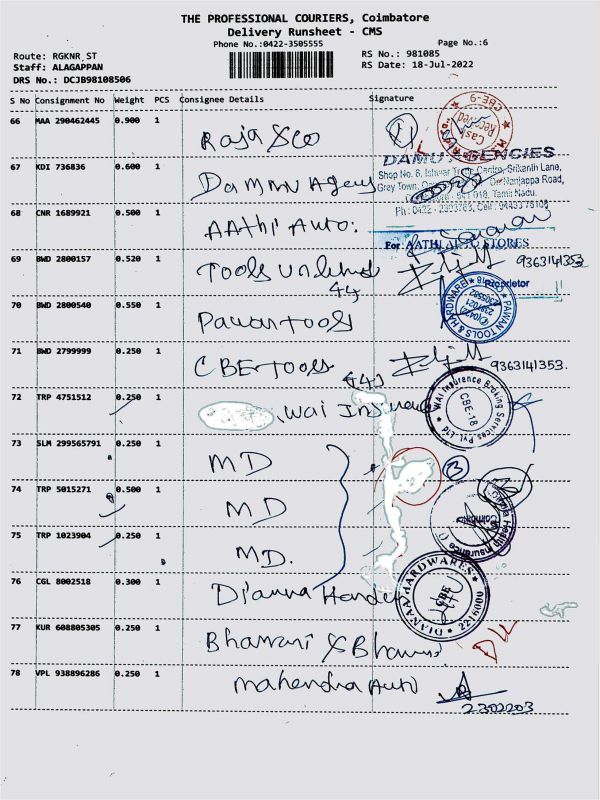 THE PROFESSIONAL COURIERS, Coimbatore
Delivery Runsheet - CMS
Phone No.:0422-3505555
Page No.:6
Route: RGKNR_ST
RS No.: 981085
Staff: ALAGAPPAN
RS Date: 18-Jul-2022
DRS No.: DCJB98108506
S No Consignment No Weight PCS Consignee Details Signature
66 MAA 290462445 0.900 1
Raja & co
CBE-9
Cash Received
67 KDI 736836 0.600 1
DAMU AGENCIES
Shop No. 6, Ishwar Trade Centro, Srikanth Lane,
Grey Town, Nanjappa Road,
Tamil Nadu.
Ph : 0422 - 2303763, Cell : 9443375108
68 CNR 1689921 0.500 1
AAthi AUTO.
For AATHI AUTO STORES
Proprietor
69 BWD 2800157 0.520 1
Tools unlimited
44
9363141353
70 BWD 2800540 0.550 1
Pawan Tools
PAWAN TOOLS & HARDWARE
71 BWD 2799999 0.250 1
CBE Tools
44
9363141353.
72 TRP 4751512 0.250 1
Wai Insurance
WAI Insurance Broking Services Pvt. Ltd
CBE-18
73 SLM 299565791 0.250 1
MD
3
74 TRP 5015271 0.500 1
MD
Health Insurance
75 TRP 1023904 0.250 1
MD.
76 CGL 8002518 0.300 1
Dianna
DIANAA HARDWARES
CBE
77 KUR 608805305 0.250 1
Bhavani & Bhavani
78 VPL 938896286 0.250 1
Mahendra Auto
2302203